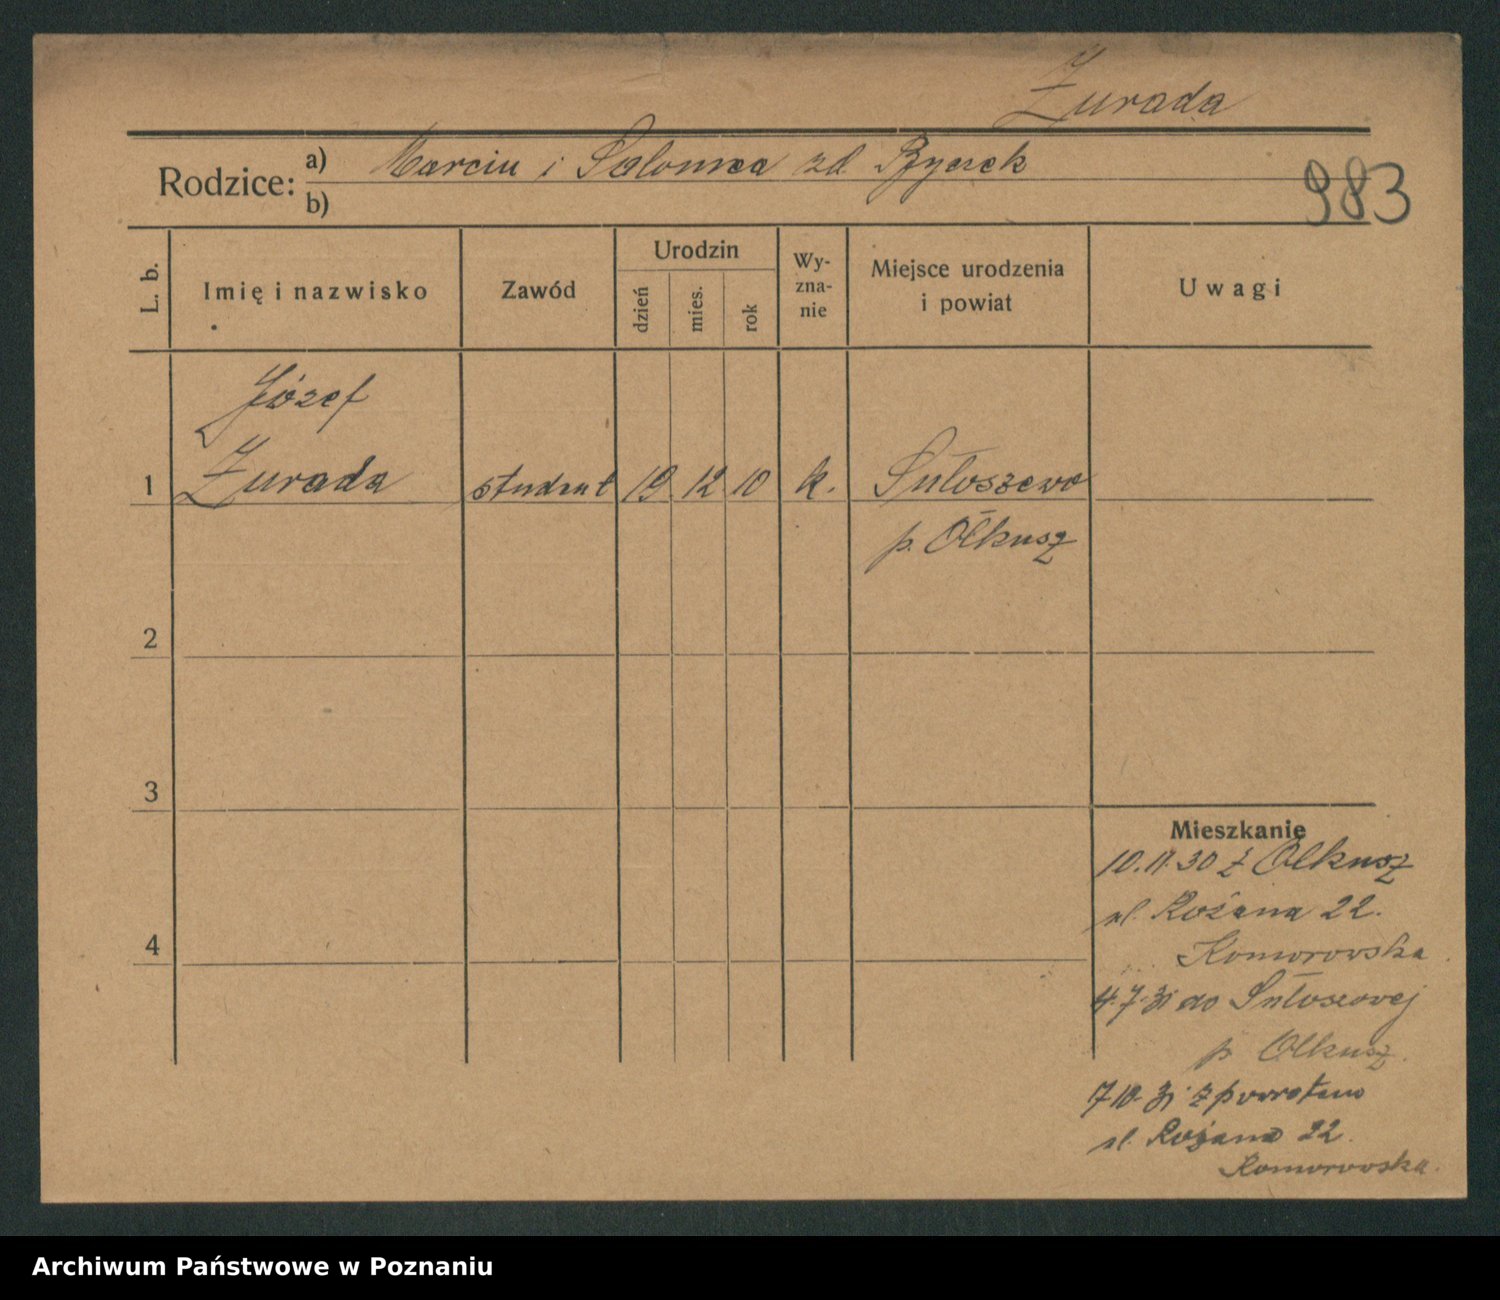 Żurada
Rodzice: a) Marcin i Salomea zd
b)
983
L. b.
Imię i nazwisko
Zawód
Urodzin
dzień
mies.
rok
Wy-
zna-
nie
Miejsce urodzenia
i powiat
Uwagi
Józef
1 Żurada student 19 12 10 k. Sułoszewo
p. Olkusz
2
3
4
Mieszkanie
10.11.30 z Olkusz
ul. Różana 22.
Komorowska
4.7.31 do Sułoszovej
p Olkusz.
7 10 31 z powrotem
ul. Różana 22.
Komorowska.
Archiwum Państwowe w Poznaniu